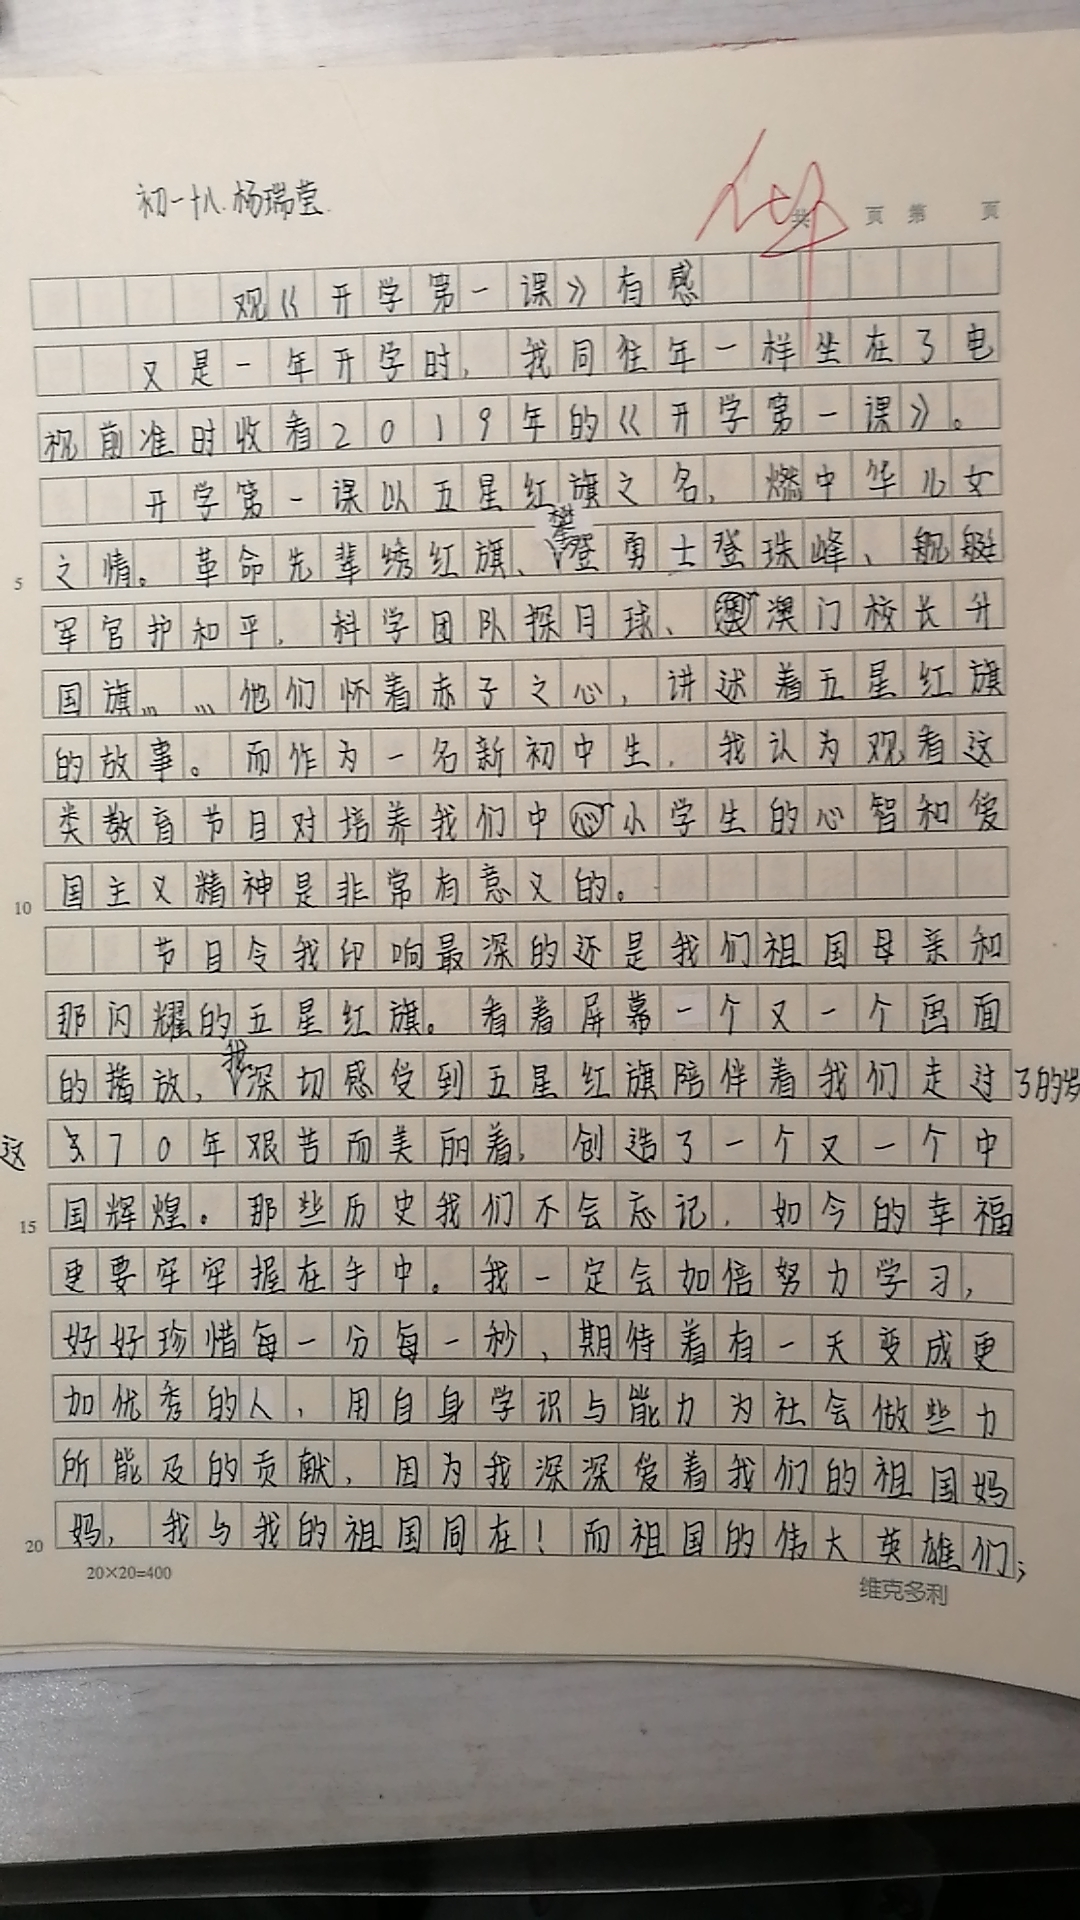 初一十八.杨瑞莹.
共 页 第 页
观《开学第一课》有感
又是一年开学时，我同往年一样坐在了电
视前准时收看2019年的《开学第一课》。
开学第一课以五星红旗之名，燃中华儿女
之情。革命先辈绣红旗、攀登勇士登珠峰、舰艇
5
军官护和平，科学团队探月球、澳门校长升
国旗……他们怀着赤子之心，讲述着五星红旗
的故事。而作为一名新初中生，我认为观看这
类教育节目对培养我们中小学生的心智和爱
国主义精神是非常有意义的。
10
节目令我印响最深的还是我们祖国母亲和
那闪耀的五星红旗。看着屏幕一个又一个画面
的播放，我深切感受到五星红旗陪伴着我们走过了的岁
这70年艰苦而美丽着，创造了一个又一个中
国辉煌。那些历史我们不会忘记，如今的幸福
15
更要牢牢握在手中。我一定会加倍努力学习，
好好珍惜每一分每一秒，期待着有一天变成更
加优秀的人，用自身学识与能力为社会做些力
所能及的贡献，因为我深深爱着我们的祖国妈
妈，我与我的祖国同在！而祖国的伟大英雄们，
20
20×20=400
维克多利